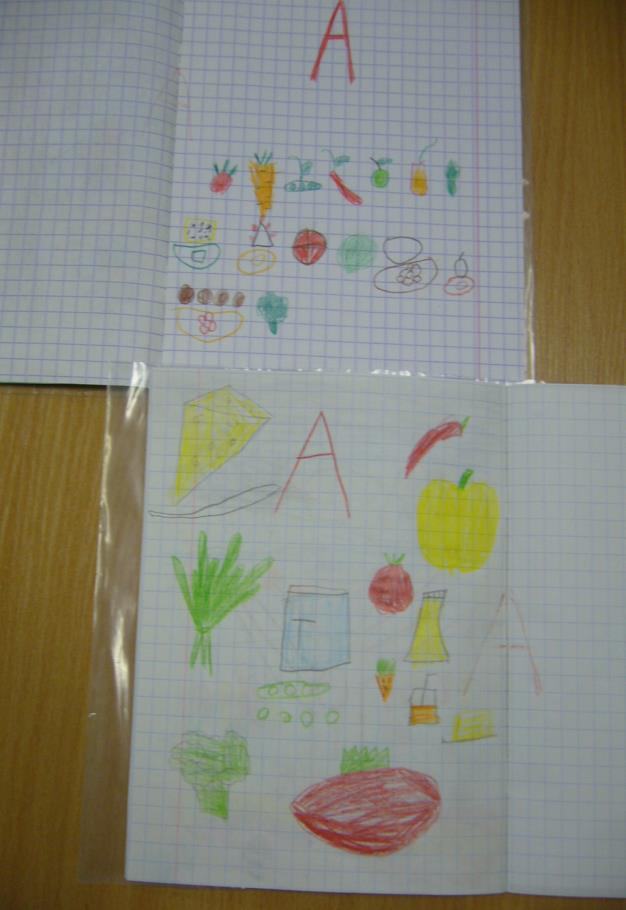 A
A
A